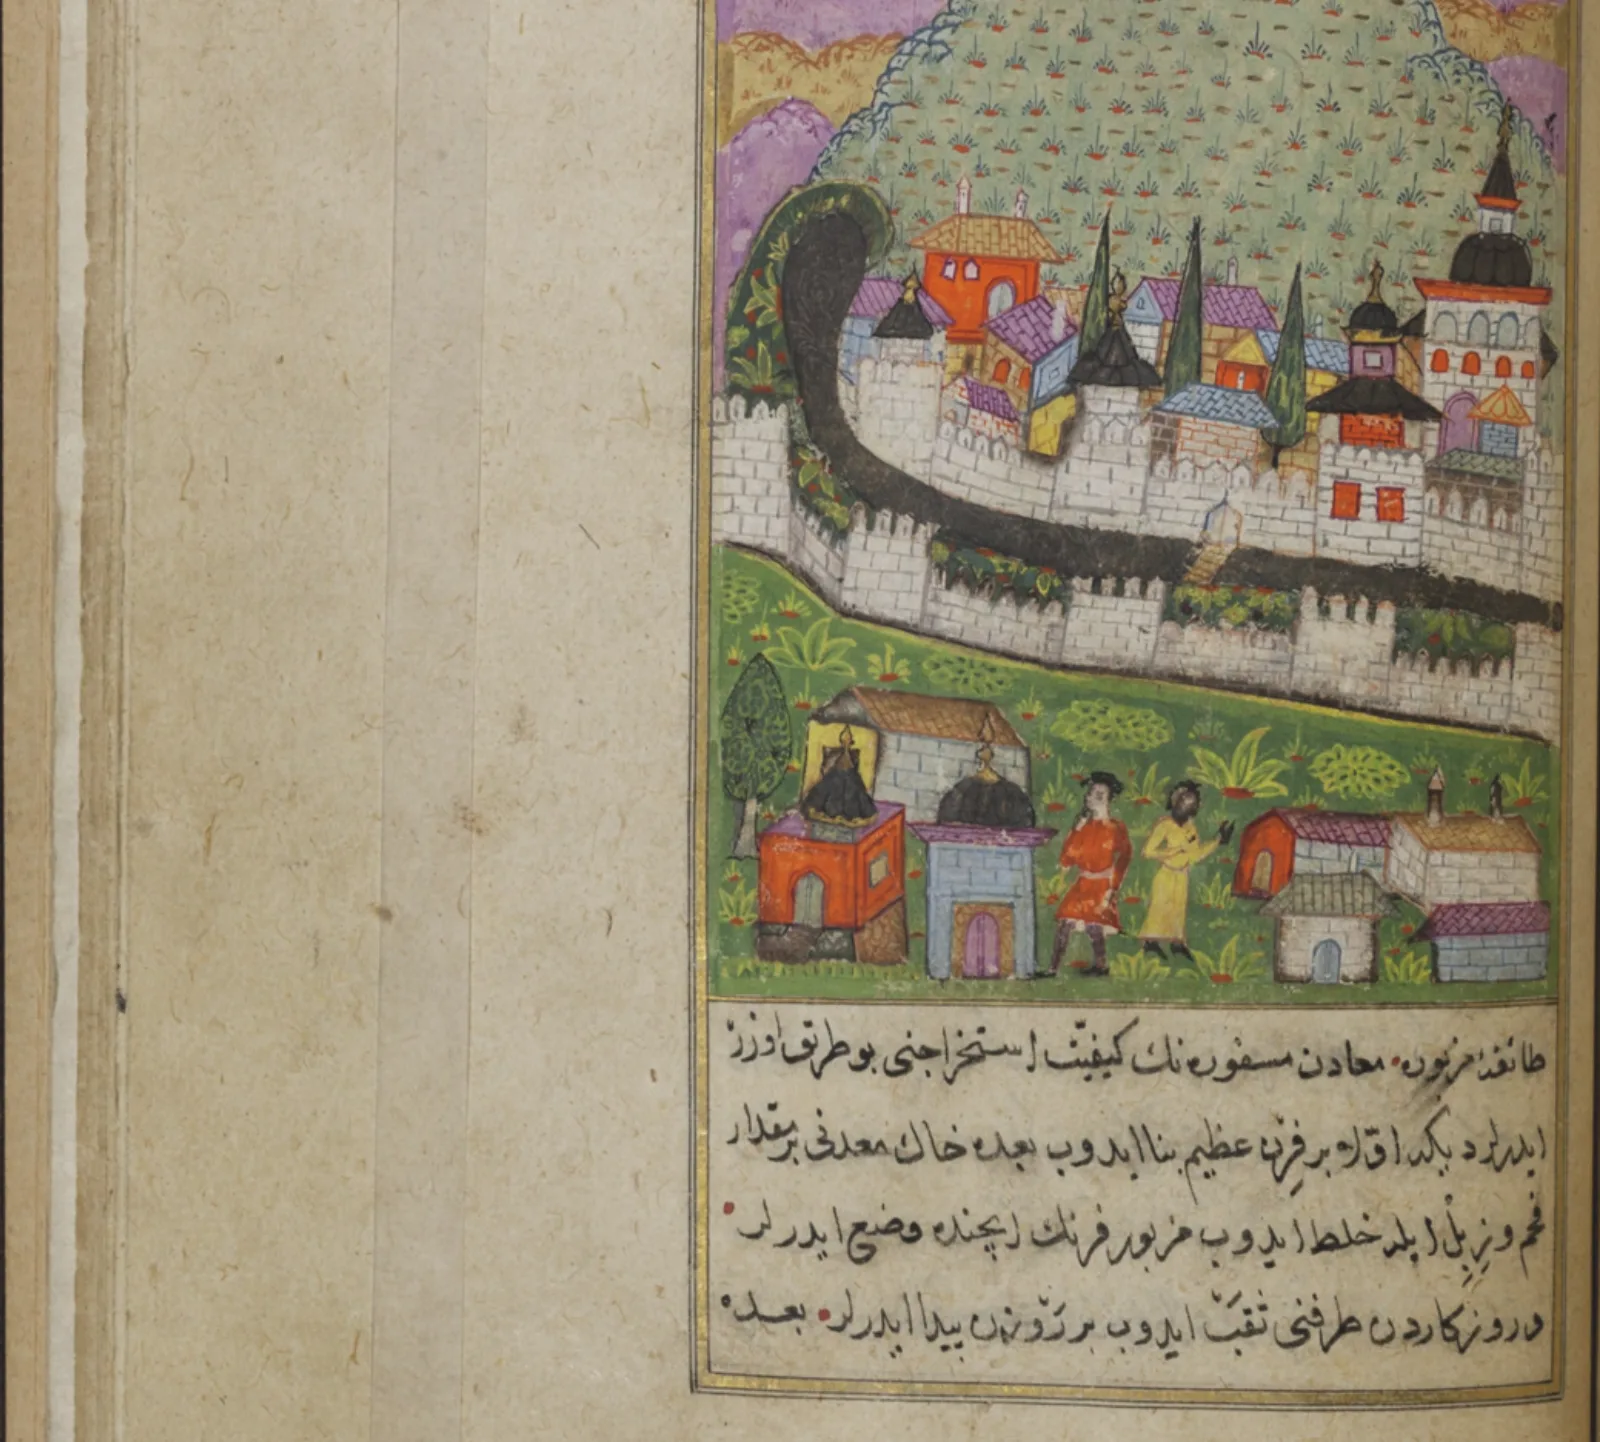 طائفۀ مزبوره معادن مسفوره نك كيفيّت استخراجنى بو طريق اوزره
ايدرلر ديكه اوّلا بر فرن عظيم بنا ايدوب بعده خاك معدنى بر مقدار
فحم و زِبِلْ ايله خلط ايدوب مزبور فرنك ايچنده وضع ايدرلر
و روزكاردن طرفنى ثقبَتْ ايدوب بر رَوْزنه پيدا ايدرلر بعده